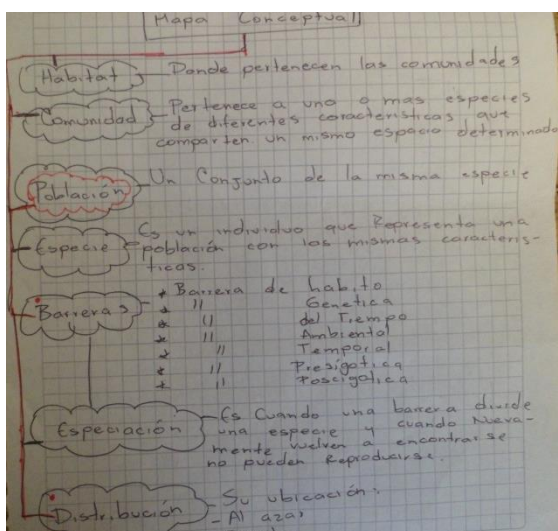 Mapa Conceptual
Habitat - Donde pertenecen las comunidades
Comunidad - Pertenece a una o mas especies
de diferentes caracteristicas que
comparten un mismo espacio determinado
Población - Un Conjunto de la misma especie
Especie - Es un individuo que Representa una
población con las mismas caracteris-
ticas.
Barreras - * Barrera de habito
* " Genetica
* " del Tiempo
* " Ambiental
* " Temporal
* " Presigotica
* " Poscigotica
Especiación - Es Cuando una barrera divide
una especie y cuando Nueva-
mente vuelven a encontrarse
no pueden Reproducirse.
Distribución - Su ubicación:
- Al azar